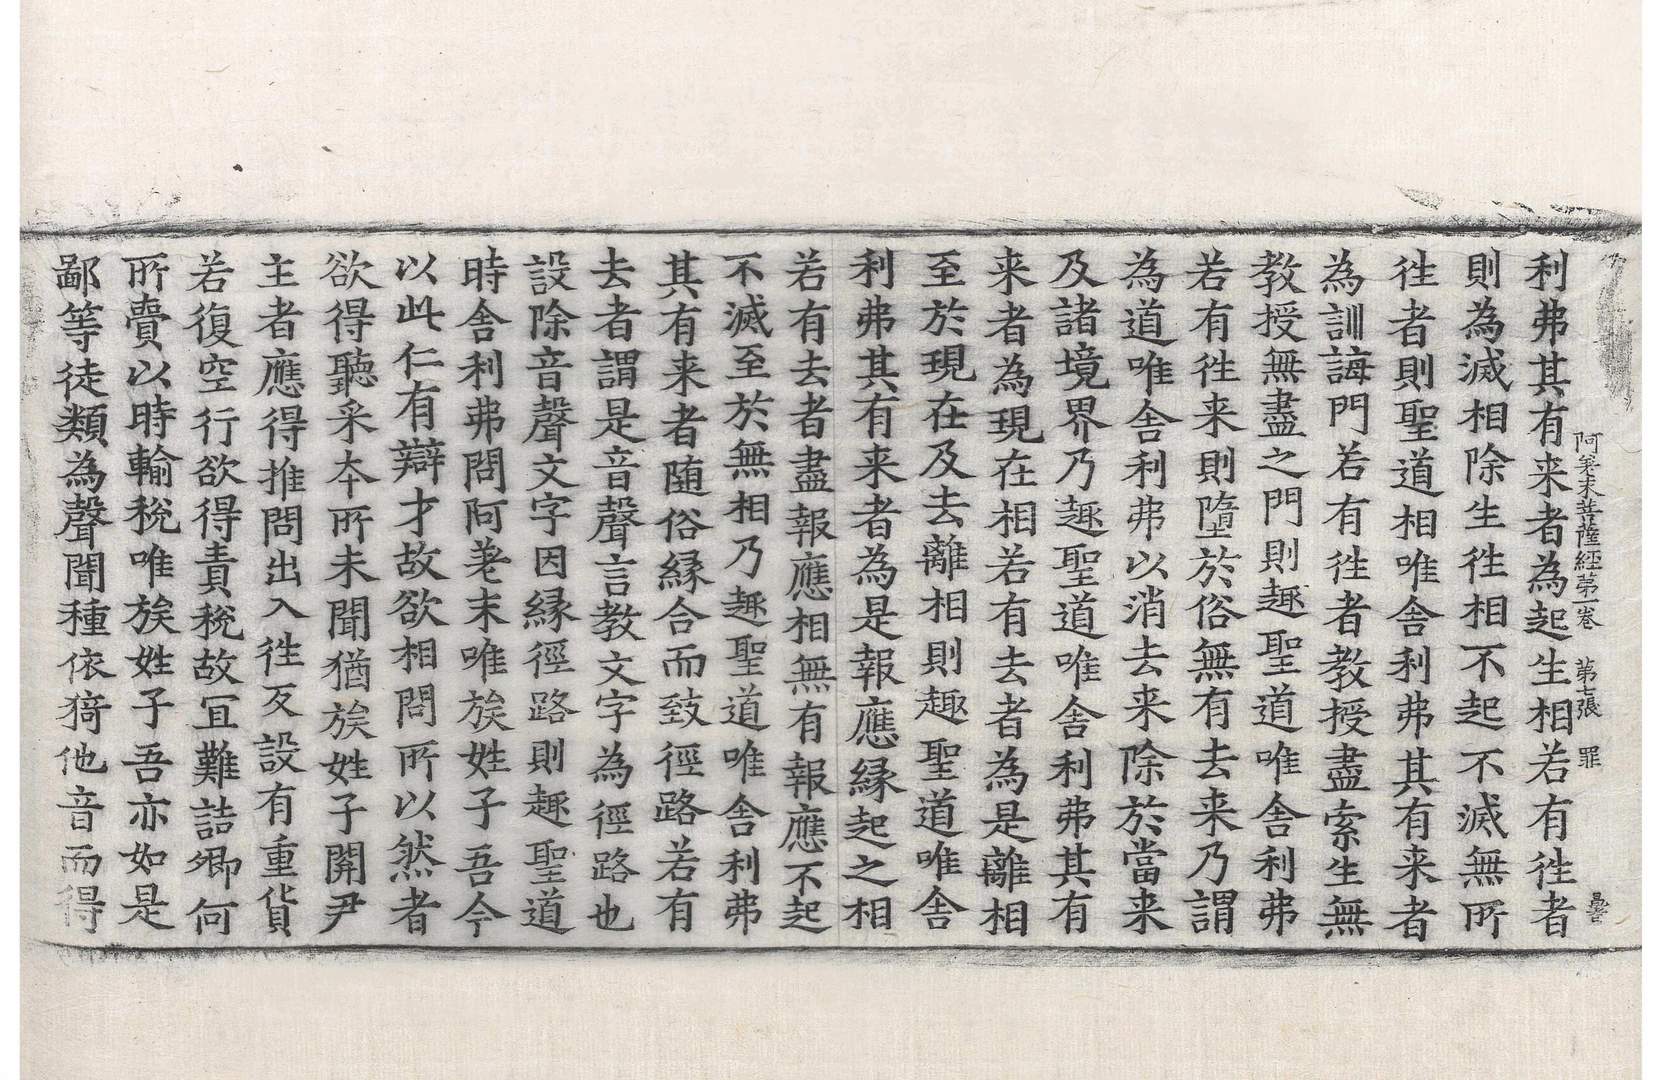 阿差末菩薩經第一卷 第七張 罪
利弗其有来者為起生相若有往者
則為滅相除生往相不起不滅無所
往者則聖道相唯舍利弗其有来者
為訓誨門若有往者教授盡索生無
教授無盡之門則趣聖道唯舍利弗
若有往来則墮於俗無有去来乃謂
為道唯舍利弗以消去来除於當来
及諸境界乃趣聖道唯舍利弗其有
来者為現在相若有去者為是離相
至於現在及去離相則趣聖道唯舍
利弗其有来者為是報應縁起之相
若有去者盡報應相無有報應不起
不滅至於無相乃趣聖道唯舍利弗
其有来者随俗縁合而致徑路若有
去者謂是音聲言教文字為徑路也
設除音聲文字因縁徑路則趣聖道
時舍利弗問阿差末唯族姓子吾今
以此仁有辯才故欲相問所以然者
欲得聽采本所未聞猶族姓子關尹
主者應得推問出入往反設有重貨
若復空行欲得責稅故冝難詰卿何
所賣以時輸稅唯族姓子吾亦如是
鄙等徒類為聲聞種依猗他音而得